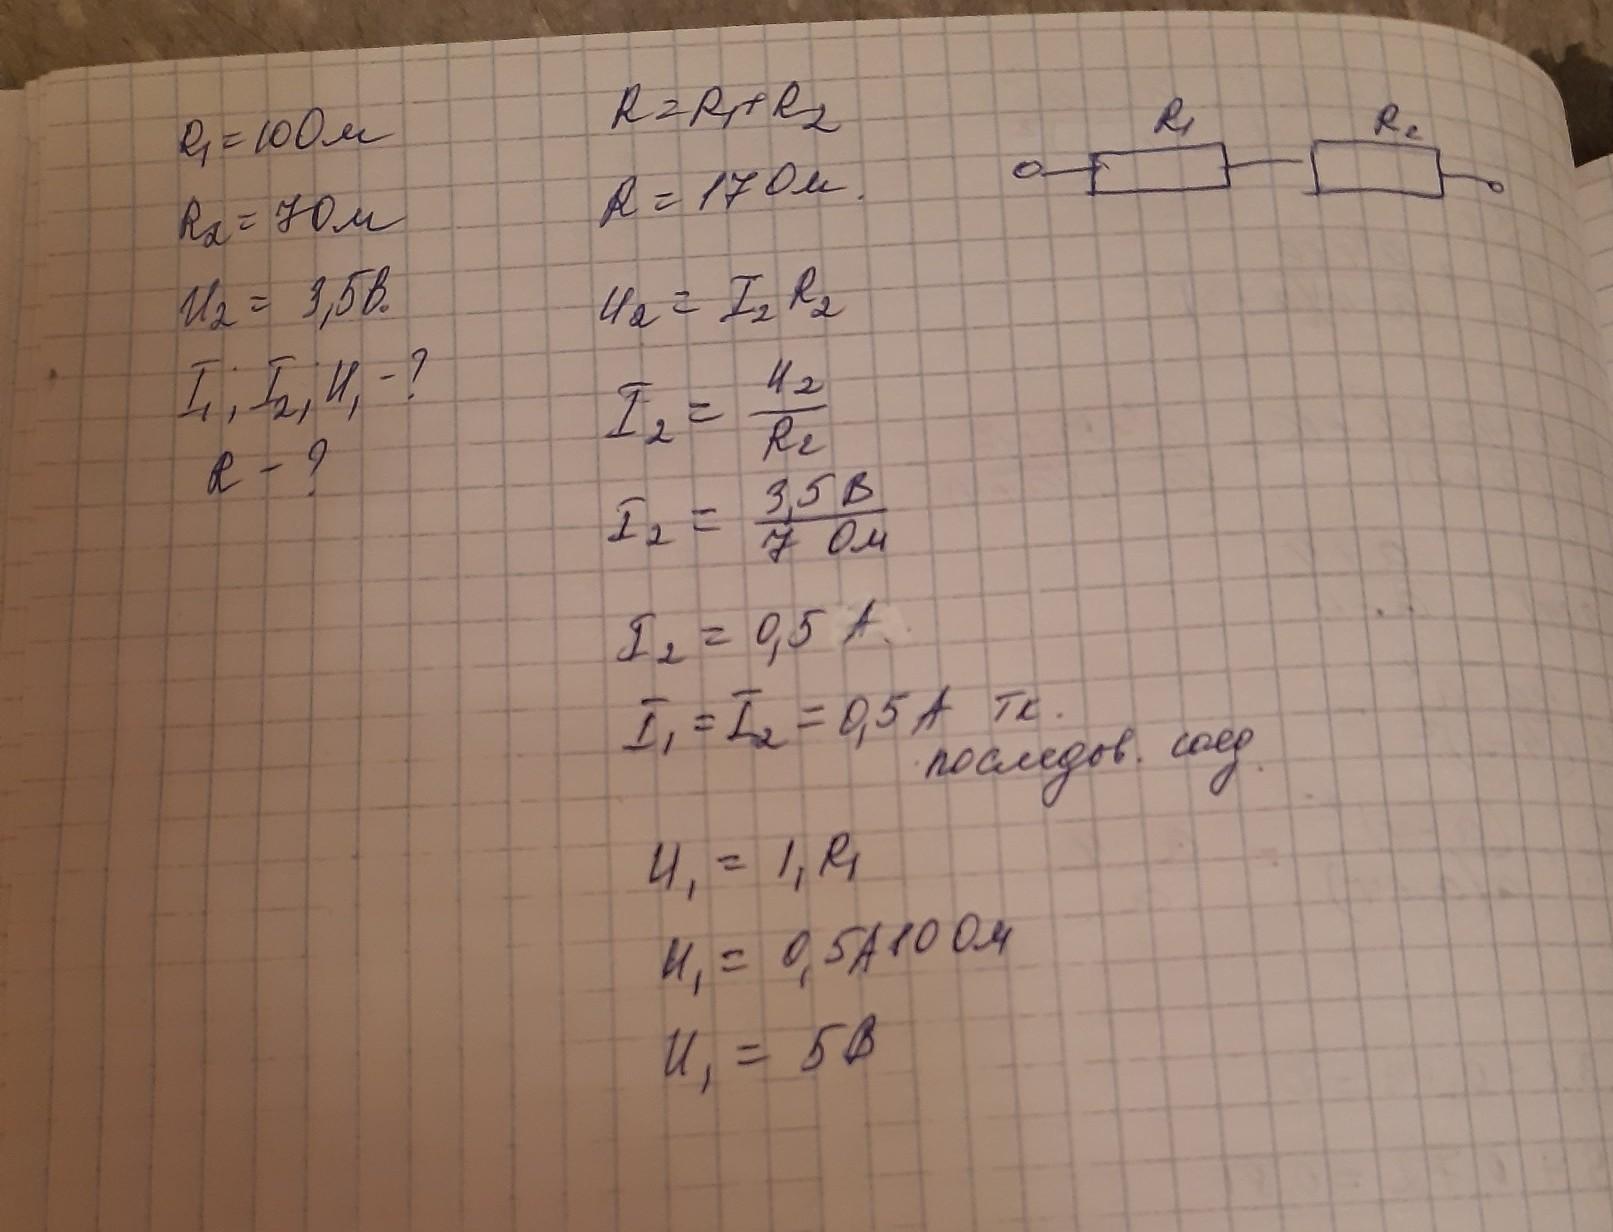 R₁ = 10 Ом
R₂ = 7 Ом
U₂ = 3,5 В.
I₁, I₂, U₁ - ?
R - ?
R = R₁ + R₂
R = 17 Ом.
U₂ = I₂ R₂
I₂ = U₂ / R₂
I₂ = 3,5 В / 7 Ом
I₂ = 0,5 А.
I₁ = I₂ = 0,5 А тк.
последов. соед.
U₁ = I₁ R₁
U₁ = 0,5 А 10 Ом
U₁ = 5 В
R₁ R₂